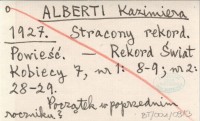 ALBERTI Kazimiera
1927. Stracony rekord.
Powieść. — Rekord Świat
Kobiecy 7, nr 1: 8-9; nr 2:
28-29.
Początek w poprzednim
roczniku?